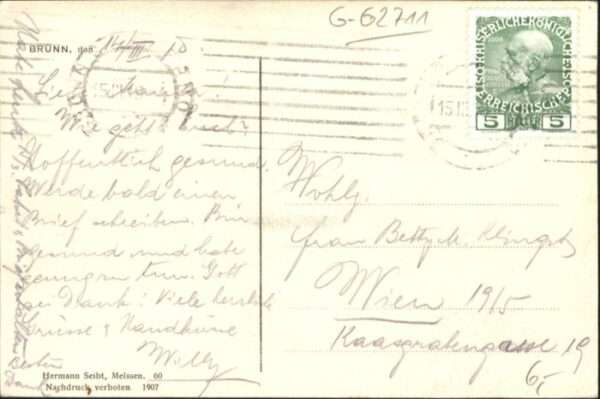 G-62711
BRÜNN, den 14/III. 10.
Liebe
Wie geht's Euch?
Hoffentlich gesund.
Werde bald einen
Brief schreiben. Bin
gesund und habe
genug zu tun. Gott
sei Dank! Viele herzliche
Grüsse & Handküsse
Willy
Hermann Seibt, Meissen. 60
Nachdruck verboten 1907
KAISERLICHE KÖNIGLICHE
ÖSTERREICHISCHE POST
5 5
15.III
Wohlg.
Frau Betty
Wien 19/5
Kaasgrabengasse 19
6,-
erhalten
Besten
Dank